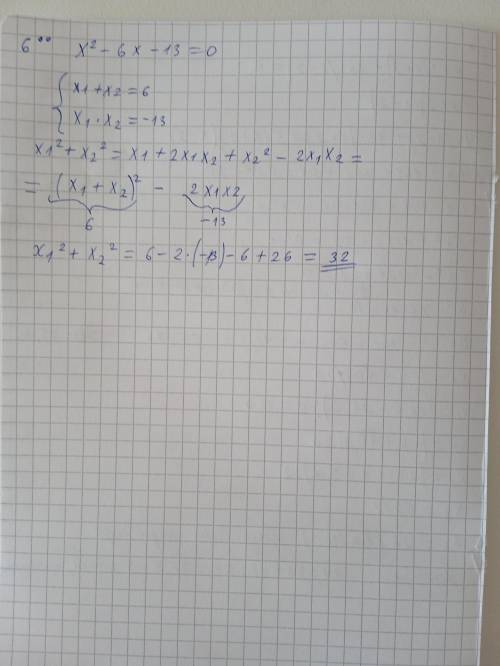 6°° x² - 6x - 13 = 0
{ x1 + x2 = 6
{ x1 · x2 = -13
x1² + x2² = x1 + 2x1x2 + x2² - 2x1x2 =
= (x1 + x2)² - 2x1x2
6 -13
x1² + x2² = 6 - 2·(-13) - 6 + 26 = 32